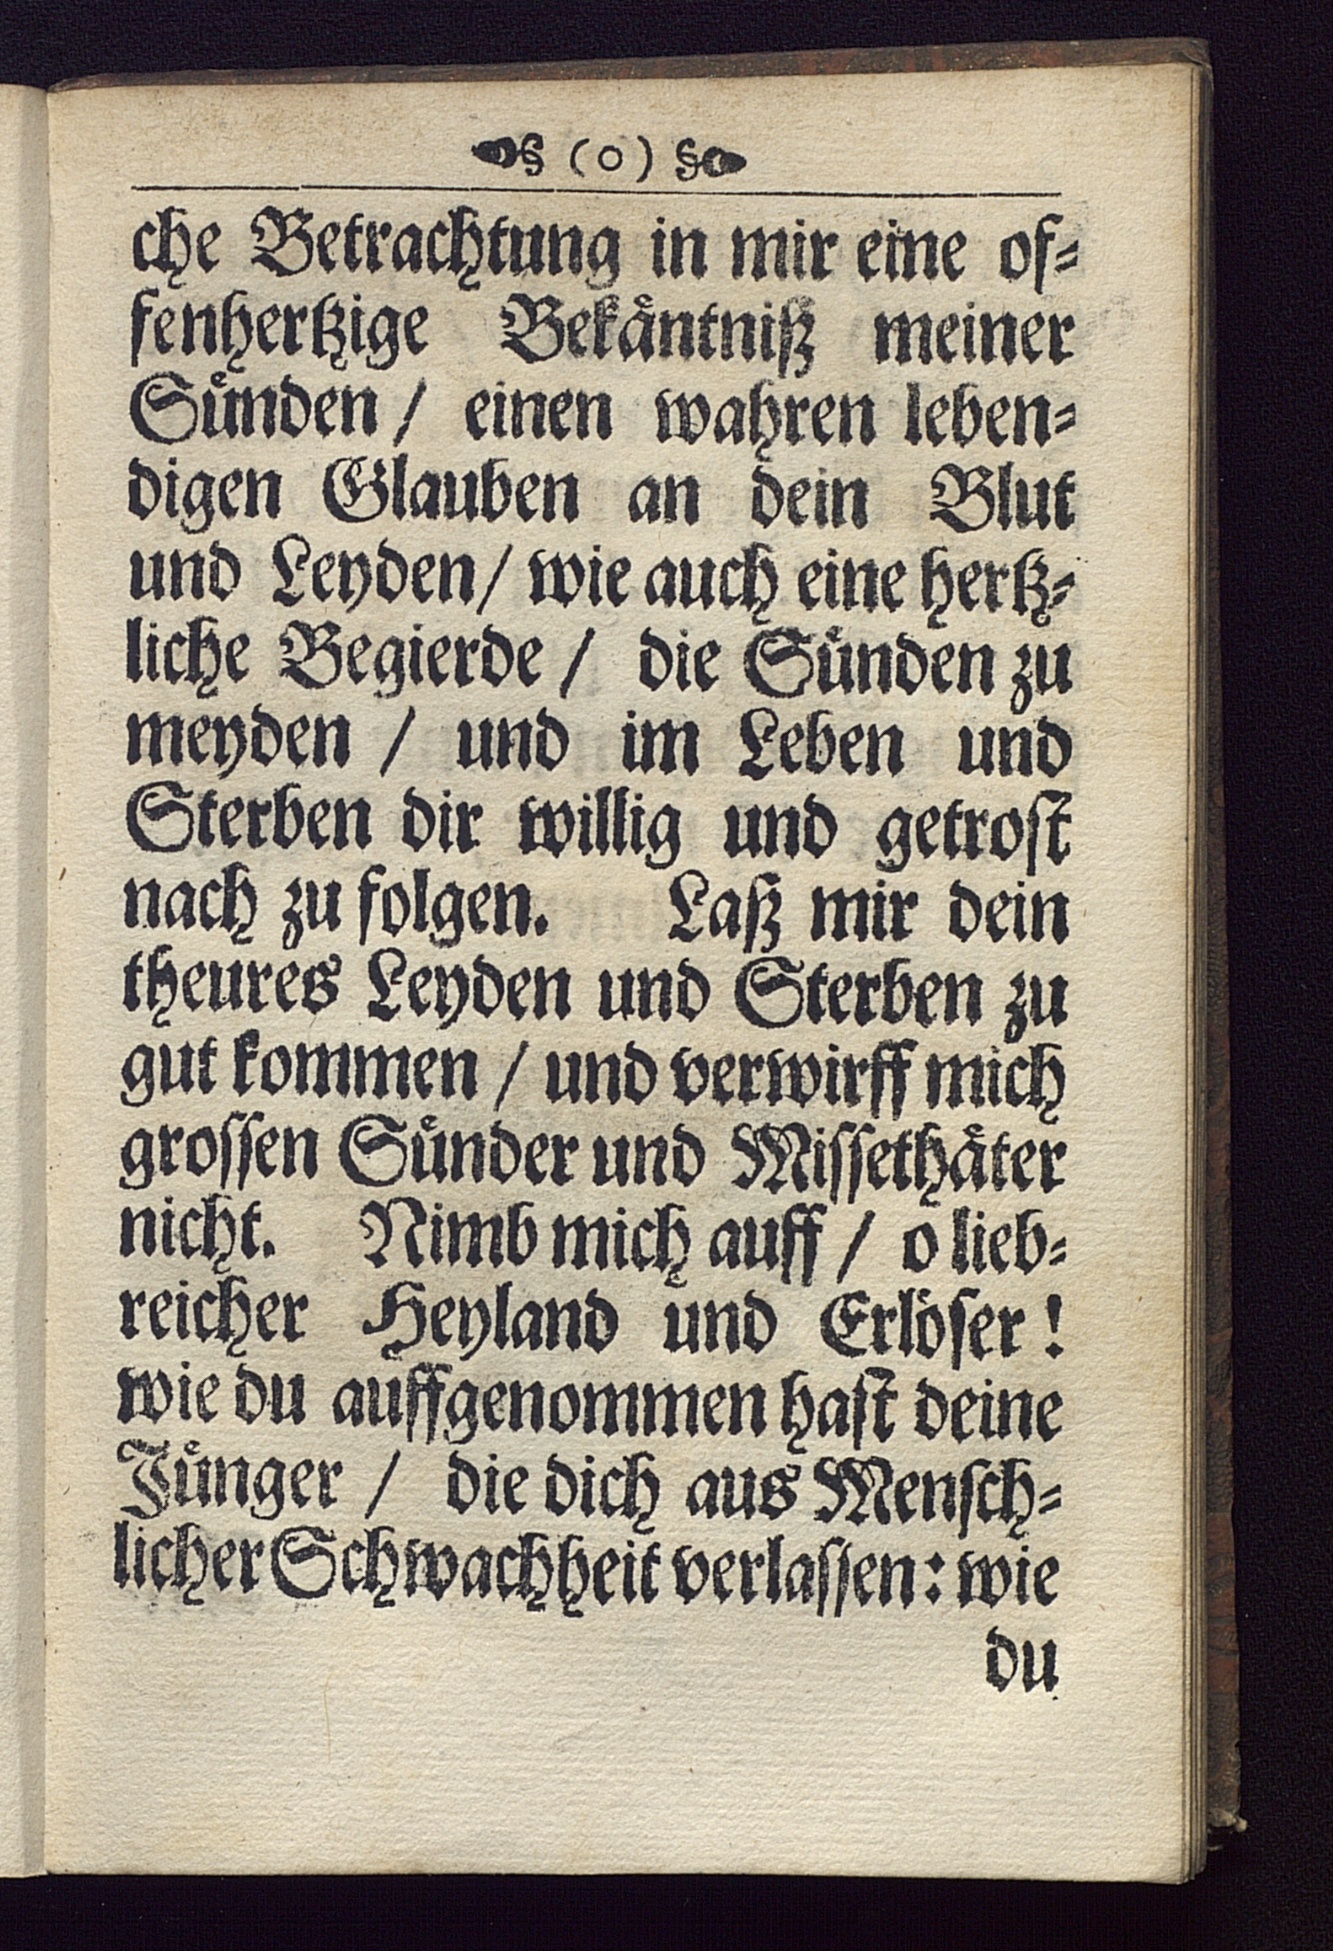 § (o) §
che Betrachtung in mir eine of-
fenhertzige Bekäntniß meiner
Sünden / einen wahren leben-
digen Glauben an dein Blut
und Leyden / wie auch eine hertz-
liche Begierde / die Sünden zu
meyden / und im Leben und
Sterben dir willig und getrost
nach zu folgen. Laß mir dein
theures Leyden und Sterben zu
gut kommen / und verwirff mich
grossen Sünder und Missethäter
nicht. Nimb mich auff / o lieb-
reicher Heyland und Erlöser !
wie du auffgenommen hast deine
Jünger / die dich aus Mensch-
licher Schwachheit verlassen: wie
du